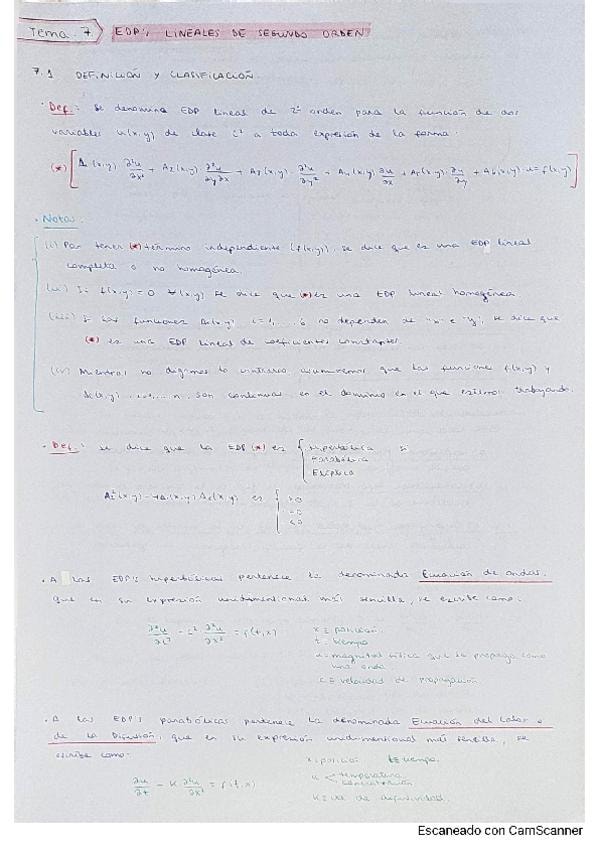 Tema 7 EDP's LINEALES DE SEGUNDO ORDEN
7.1 DEFINICIÓN Y CLASIFICACIÓN.
· Def.: Se denomina EDP lineal de 2º orden para la función de dos
variables u(x,y) de clase C² a toda expresión de la forma:
(*) [A₁(x,y)·∂²u/∂x² + A₂(x,y)·∂²u/∂y∂x + A₃(x,y)·∂²u/∂y² + A₄(x,y)·∂u/∂x + A₅(x,y)·∂u/∂y + A₆(x,y)·u = f(x,y)]
· Notas:
(i) Por tener (*) término independiente (f(x,y)), se dice que es una EDP lineal
completa o no homogénea.
(ii) Si f(x,y)=0 ∀(x,y) se dice que (*) es una EDP lineal homogénea.
(iii) Si las funciones Ai(x,y) i=1,...,6 no dependen de "x" e "y", se dice que
(*) es una EDP lineal de coeficientes constantes.
(iv) Mientras no digamos lo contrario, asumiremos que las funciones f(x,y) y
Ai(x,y) son continuas en el dominio en el que estemos trabajando.
· Def.: Se dice que la EDP (*) es { Hiperbólica si
Parabólica
Elíptica
A₂²(x,y)-4A₁(x,y)A₃(x,y) es { >0
=0
<0
· A las EDP's hiperbólicas pertenece la denominada Ecuación de ondas,
que en su expresión unidimensional más sencilla, se escribe como:
∂²u/∂t² - c² ∂²u/∂x² = f(t,x)
x ≡ posición
t ≡ tiempo
u ≡ magnitud física que se propaga como
una onda
c ≡ velocidad de propagación
· A las EDP's parabólicas pertenece la denominada Ecuación del Calor o
de la Difusión, que en su expresión unidimensional más sencilla, se
escribe como:
x ≡ posición t ≡ tiempo.
∂u/∂t - K ∂²u/∂x² = f(t,x)
u < temperatura
concentración
K ≡ de difusividad.
Escaneado con CamScanner